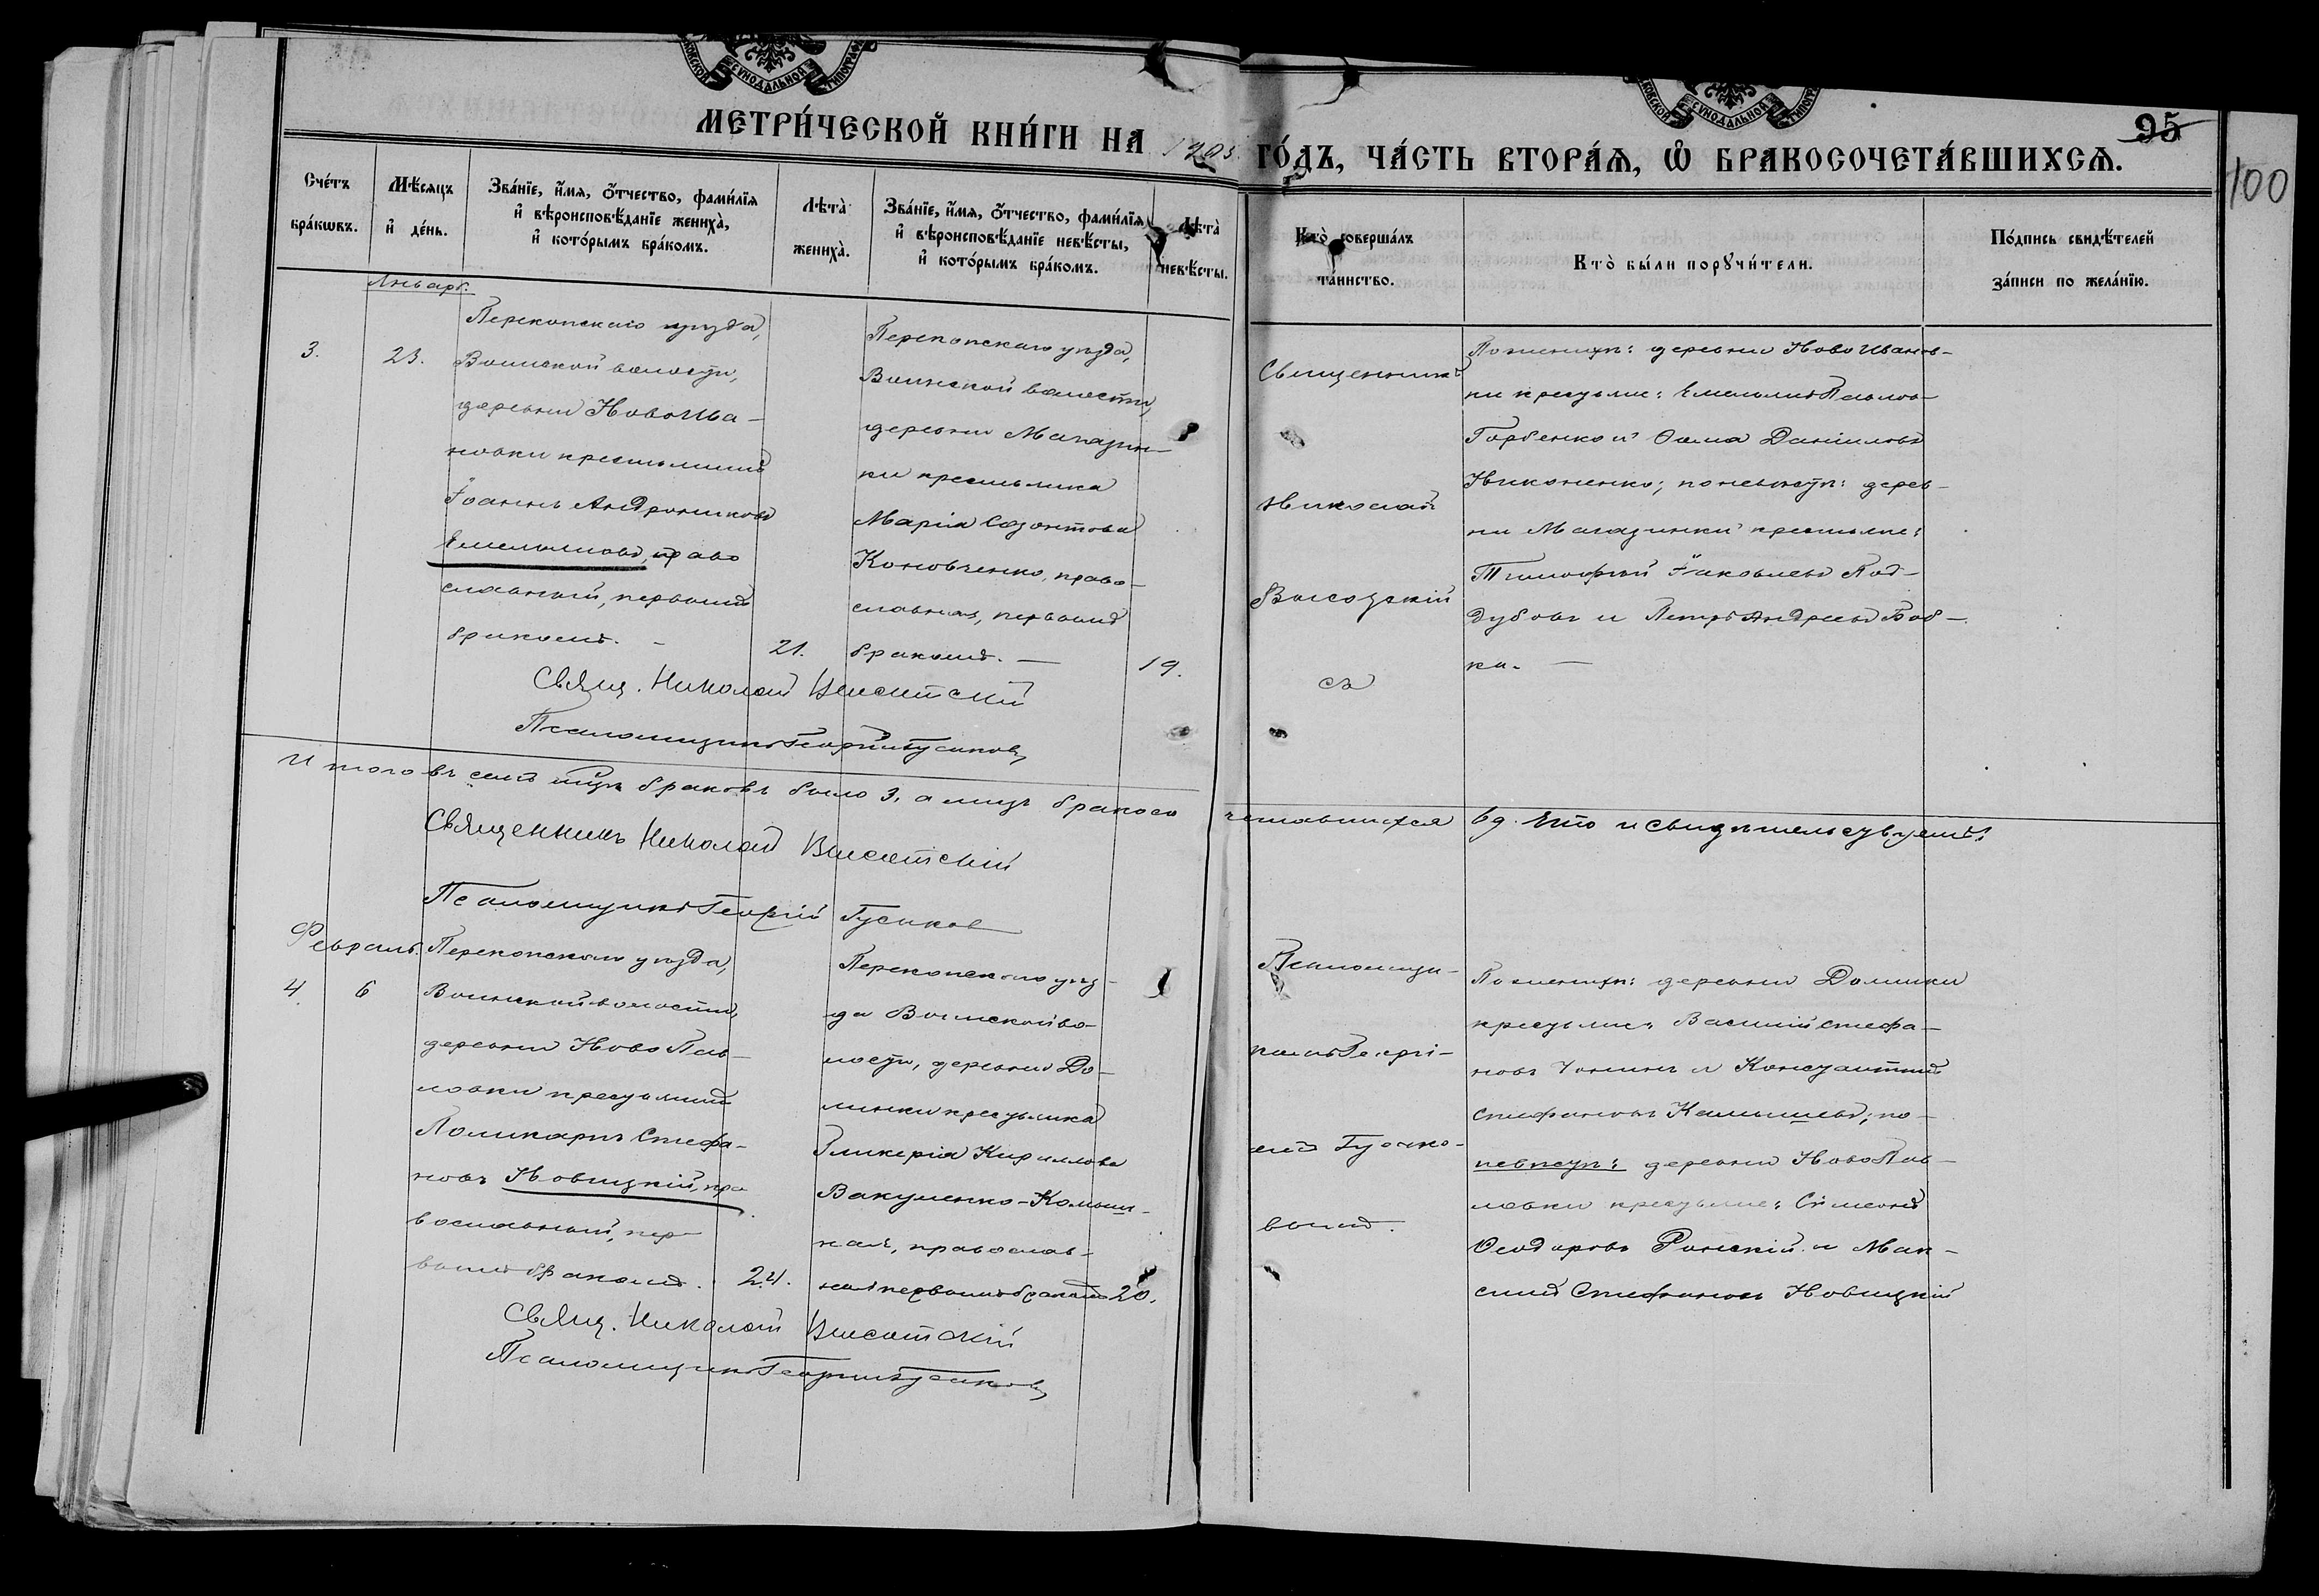 СѴНОДАЛЬНОЙ
СѴНОДАЛЬНОЙ
МЕТРИ́ЧЕСКОЙ КНИ́ГИ НА 1903 ГО́ДЪ, ЧА́СТЬ ВТОРА́Я, Ѡ БРАКОСОЧЕТА́ВШИХСЯ.
95
100
Сче́тъ
бра́кѡвъ.
Мѣ́сяцъ
и҆ де́нь.
Зва́нїе, и҆́мя, ѻ҆́тчество, фами́лїя
и҆ вѣроисповѣ́данїе жениха̀,
и҆ кото́рымъ бра́комъ.
Лѣта̀
жениха̀.
Зва́нїе, и҆́мя, ѻ҆́тчество, фами́лїя
и҆ вѣроисповѣ́данїе невѣ́сты,
и҆ кото́рымъ бра́комъ.
Лѣта̀
невѣ́сты.
Кто̀ соверша́лъ
та́инство.
Кто̀ бы́ли порꙋчи́тели.
По́дпись свидѣ́телей
за́писи по жела́нїю.
Январь.
3.
23.
Перекопскаго уѣзда,
Воинской волости,
деревни Новоива-
новки крестьянинъ
Іоаннъ Андрониковъ
Емельяновъ, право
славный, первымъ
бракомъ. –
21.
Перекопскаго уѣзда,
Воинской волости,
деревни Магазин-
ки крестьянка
Марія Созонтова
Коновченко, право-
славная, первымъ
бракомъ. —
19.
Священникъ
Николай
Высоцкій
съ
По женихѣ: деревни Ново Иванов-
ки крестьяне: Емельянъ Павлов
Горбенко и Ѳома Даниловъ
Никоненко; по невѣстѣ: дерев-
ни Магазинки крестьяне:
Тимоѳей Іаковлевъ Под-
дубовъ и Петръ Андреевъ Боб-
ка. —
Свящ. Николай Высотскій
Псаломщикъ Георгій Гусаковъ
Итого въ семъ м-цѣ браковъ было 3, а лицъ бракосо
четавшихся 6д. Что и свидѣтельствуемъ:
Священникъ Николай Высотскій
Псаломщикъ Георгій Гусаков
Февраль.
4.
6
Перекопскаго уѣзда,
Воинской волости,
деревни Ново Пав-
ловки крестьянинъ
Поликарпъ Стефа-
новъ Новицкій, пра
вославный, пер-
вымъ бракомъ.
24.
Перекопскаго уѣз-
да Воинской во-
лости, деревни До-
линки крестьянка
Гликерія Кириллова
Вакуленко-Комыш-
ная, православ-
ная первымъ бракомъ
20.
Псаломщи-
комъ Георгі-
емъ Гусако-
вымъ.
По женихѣ: деревни Долинки
крестьяне: Василій Стефа-
новъ и Константинъ
Стефановъ Камышевъ; по-
невѣстѣ: деревни Ново Пав-
ловки крестьяне: Симеонъ
Ѳеодоровъ и Мак-
симъ Стефановъ Новицкій
Свящ. Николай Высотскій
Псаломщикъ Георгій Гусаковъ